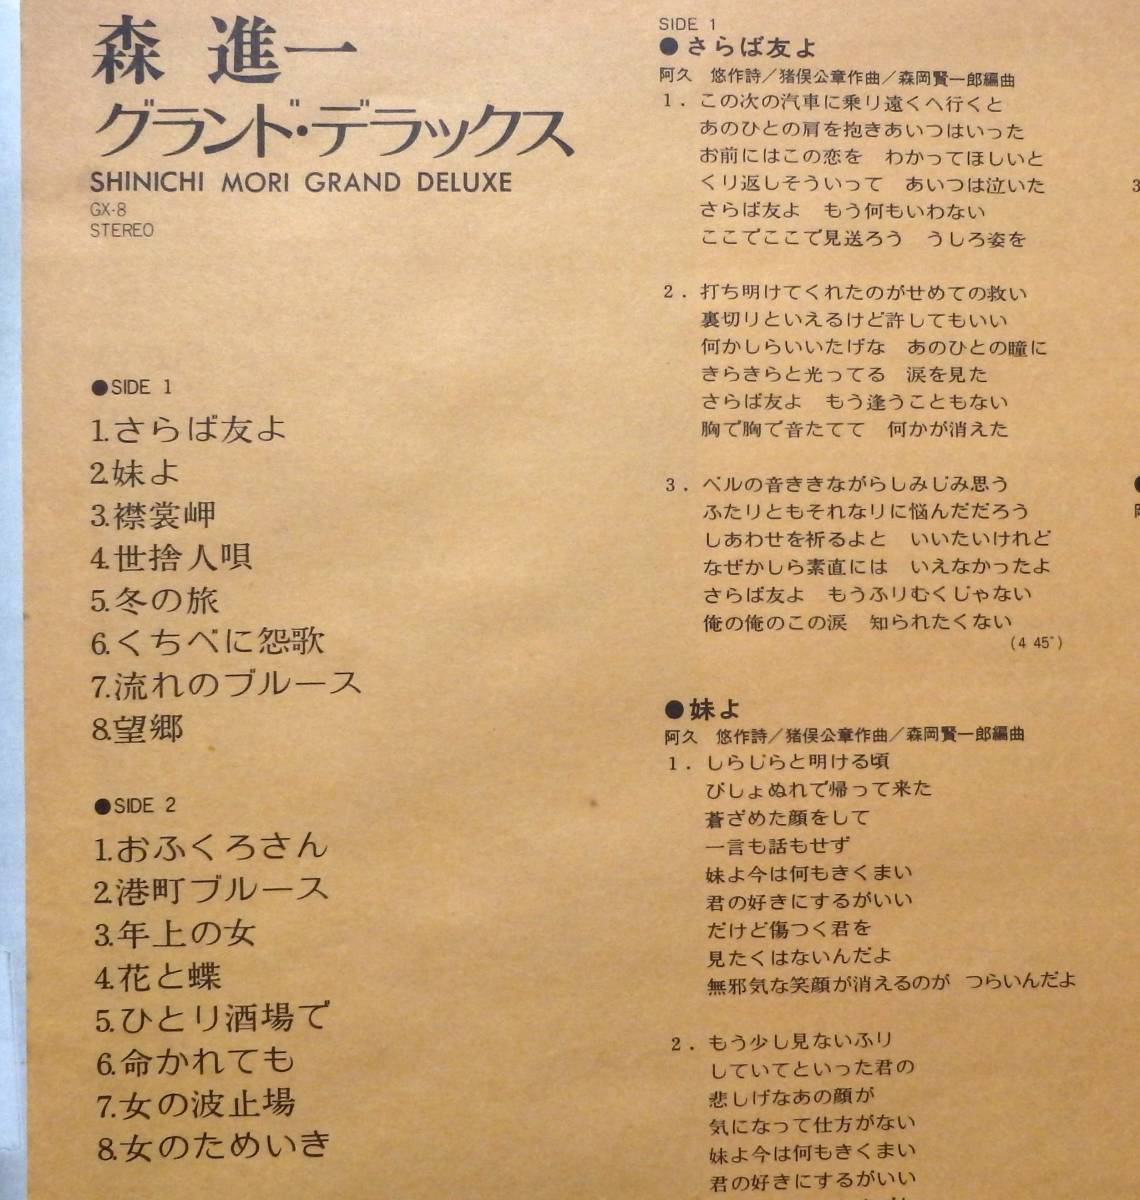 森 進一
グランド・デラックス
SHINICHI MORI GRAND DELUXE
GX-8
STEREO
●SIDE 1
1.さらば友よ
2.妹よ
3.襟裳岬
4.世捨人唄
5.冬の旅
6.くちべに怨歌
7.流れのブルース
8.望郷
●SIDE 2
1.おふくろさん
2.港町ブルース
3.年上の女
4.花と蝶
5.ひとり酒場で
6.命かれても
7.女の波止場
8.女のためいき
SIDE 1
●さらば友よ
阿久 悠作詩/猪俣公章作曲/森岡賢一郎編曲
1.この次の汽車に乗り遠くへ行くと
あのひとの肩を抱きあいつはいった
お前にはこの恋を わかってほしいと
くり返しそういって あいつは泣いた
さらば友よ もう何もいわない
ここでここで見送ろう うしろ姿を
2.打ち明けてくれたのがせめての救い
裏切りといえるけど許してもいい
何かしらいいたげな あのひとの瞳に
きらきらと光ってる 涙を見た
さらば友よ もう逢うこともない
胸で胸で音たてて 何かが消えた
3.ベルの音ききながらしみじみ思う
ふたりともそれなりに悩んだだろう
しあわせを祈るよと いいたいけれど
なぜかしら素直には いえなかったよ
さらば友よ もうふりむくじゃない
俺の俺のこの涙 知られたくない
(4 45″)
●妹よ
阿久 悠作詩/猪俣公章作曲/森岡賢一郎編曲
1.しらじらと明ける頃
びしょぬれで帰って来た
蒼ざめた顔をして
一言も話もせず
妹よ今は何もきくまい
君の好きにするがいい
だけど傷つく君を
見たくはないんだよ
無邪気な笑顔が消えるのが つらいんだよ
2.もう少し見ないふり
していてといった君の
悲しげなあの顔が
気になって仕方がない
妹よ今は何もきくまい
君の好きにするがいい
3